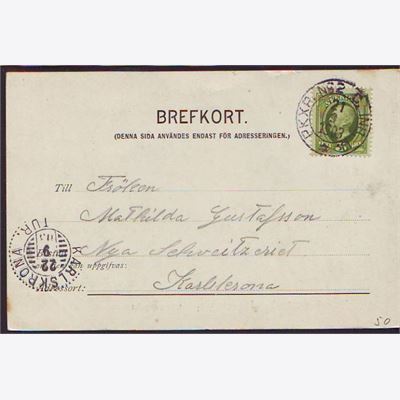 BREFKORT.
(DENNA SIDA ANVÄNDES ENDAST FÖR ADRESSERINGEN.)
PKXP. No 2
Till Fröken
Mathilda Gustafsson
Nya Schweitzeriet
uppgifvas:
Karlskrona
Adressort:
KARLSKRONA
TUR
22
9
50